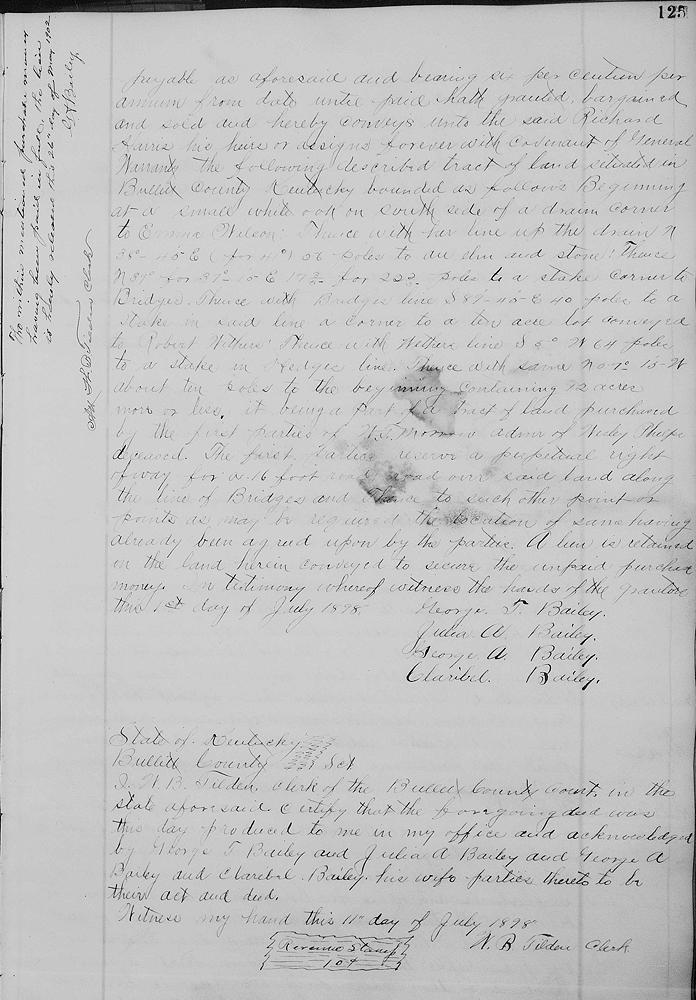 125
The within mentioned purchase money
having been paid in full, the lien
is hereby released this 26 day of May 1902
G T Bailey
Att W B Tilden Clerk
payable as aforesaid and bearing six per centum per
annum from date until paid hath granted, bargained
and sold and hereby conveys unto the said Richard
Harris his heirs or assigns forever with covenant of General
Warranty the following described tract of land situated in
Bullitt County Kentucky bounded as follows Beginning
at a small white oak on south side of a drain corner
to Emma Wilson: Thence with her line up the drain N
38°- 45 E (for 41°) 56 poles to an elm and stone: Thence
N 81° for 37°-15 E poles to a stake corner to
Bridges. Thence with Bridges line S 87°-45-E 40 poles to a
stake in said line a corner to a ten acre lot conveyed
to Robert Withers' Thence with Withers line S 5° W 64 poles
to a stake in Hedges line. Thence with same N 67° 15-W
about ten poles to the beginning containing 12 acres
more or less, it being a part of a tract of land purchased
by the first parties of W.T. Morrow admr of Phelps
deceased. The first parties reserve a perpetual right
of way for a 16 foot road over said land along
the line of Bridges and thence to such other point or
points as may be required the location of same having
already been agreed upon by the parties. A lien is retained
in the land herein conveyed to secure the unpaid purchase
money. In testimony whereof witness the hands of the grantors
this 1st day of July 1898.
George T. Bailey.
Julia A. Bailey.
George A. Bailey.
Claribel. Bailey.
State of Kentucky
Bullitt County Sct
I. W. B. Tilden, clerk of the Bullitt County Court, in the
state aforesaid certify that the foregoing deed was
this day produced to me in my office and acknowledged
by George T Bailey and Julia A Bailey and George A
Bailey and Claribel Bailey. his wife parties thereto to be
their act and deed.
Witness my hand this 11" day of July 1898
W. B Tilden Clerk
Revenue Stamp
10¢